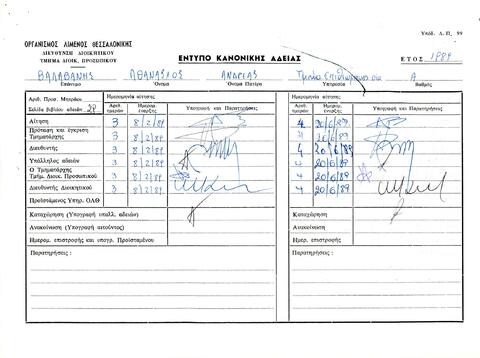 Υπόδ. Δ.Π. 99
ΟΡΓΑΝΙΣΜΟΣ ΛΙΜΕΝΟΣ ΘΕΣΣΑΛΟΝΙΚΗΣ
ΔΙΕΥΘΥΝΣΗ ΔΙΟΙΚΗΤΙΚΟΥ
ΤΜΗΜΑ ΔΙΟΙΚ. ΠΡΟΣΩΠΙΚΟΥ
ΕΝΤΥΠΟ ΚΑΝΟΝΙΚΗΣ ΑΔΕΙΑΣ
ΕΤΟΣ 1989
ΒΑΛΑΒΑΝΗΣ ΑΘΑΝΑΣΙΟΣ ΑΝΔΡΕΑΣ Τμήμα Α
Επώνυμο Όνομα Όνομα Πατέρα Υπηρεσία Βαθμός
Αριθ. Προσ. Μητρώου Ημερομηνία αίτησης Ημερομηνία αίτησης
Σελίδα βιβλίου αδειών 28 Αριθ. ημερών Ημερομ. έναρξης Υπογραφή και Παρατηρήσεις Αριθ. ημερών Ημερομ. έναρξης Υπογραφή και Παρατηρήσεις
Αίτηση 3 8/2/89 4 20/6/89
Πρόταση και έγκριση Τμηματάρχη 3 8/2/89 20/6/89
Διευθυντής 3 8/2/89 4 20/6/89
Υπάλληλος αδειών 3 8/2/89 4 20/6/89
Ο Τμηματάρχης Τμήμ. Διοικ. Προσωπικού 3 8/2/89 4 20/6/89
Διευθυντής Διοικητικού 3 8/2/89 4 20/6/89
Προϊστάμενος Υπηρ. ΟΛΘ
Καταχώρηση (Υπογραφή υπαλλ. αδειών) Καταχώρηση
Ανακοίνωση (Υπογραφή αιτούντος) Ανακοίνωση
Ημερομ. επιστροφής και υπογρ. Προϊσταμένου Ημερομ. επιστροφής και Προϊσ.
Παρατηρήσεις : Παρατηρήσεις :